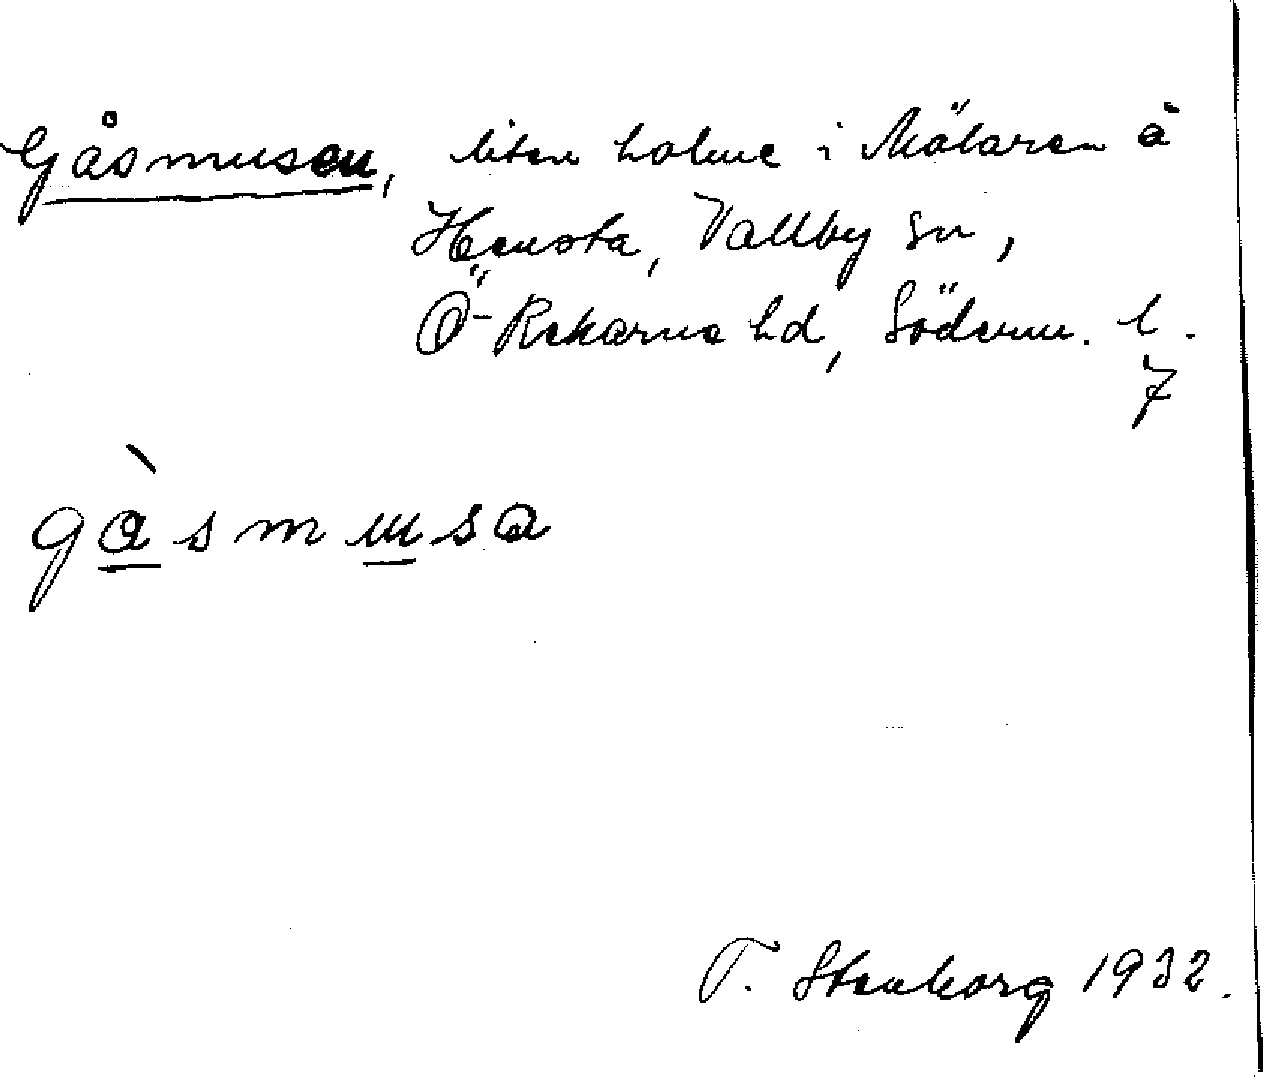 Gåsmusen, liten holme i Mälaren å
Hensta, Vallby sn,
Ö-Rekarne hd, Söderm. l.
7
gàsmusa
T. Stenborg 1932.